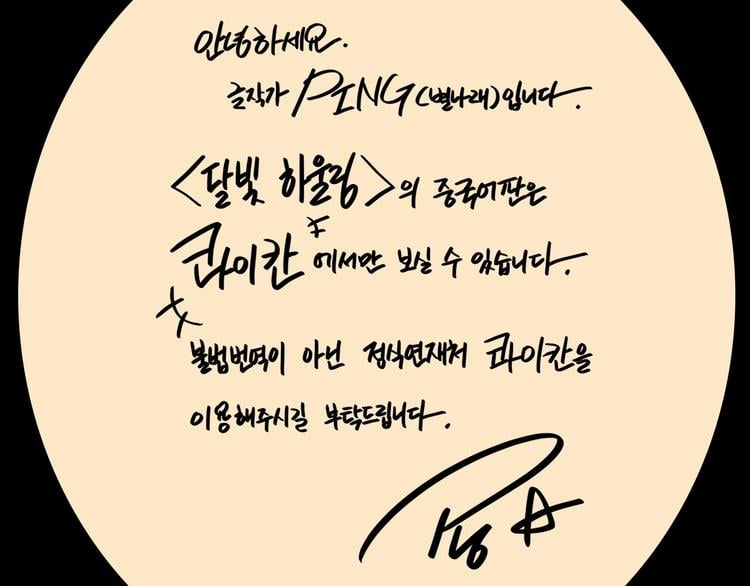 안녕하세요.
글작가 PING(별나래)입니다.
<달빛 하울링>의 중국어판은
콰이칸에서만 보실 수 있습니다.
불법번역이 아닌 정식연재처 콰이칸을
이용해주시길 부탁드립니다.
핑